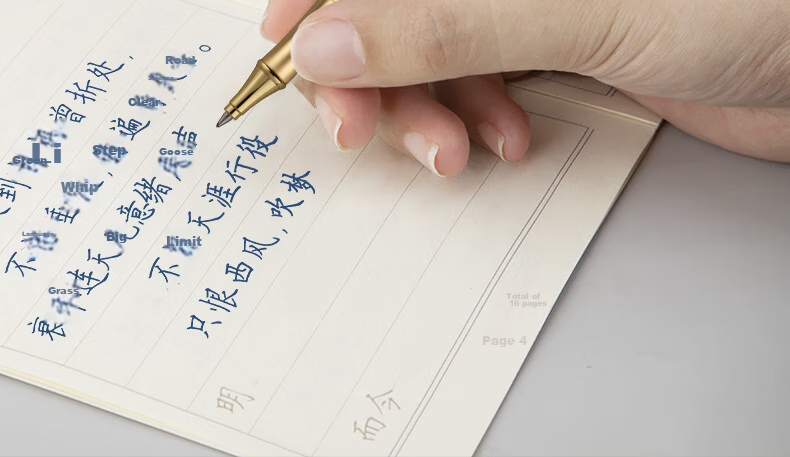 到 Li Green 曾折处,
不 垂 Whip, Step 遍 Clear Road 。
衰 Grass 连天 Big 意绪 Goose
不 Limit 天涯行役
只恨西风, 吹梦
明
而今
Total of
16 pages
Page 4